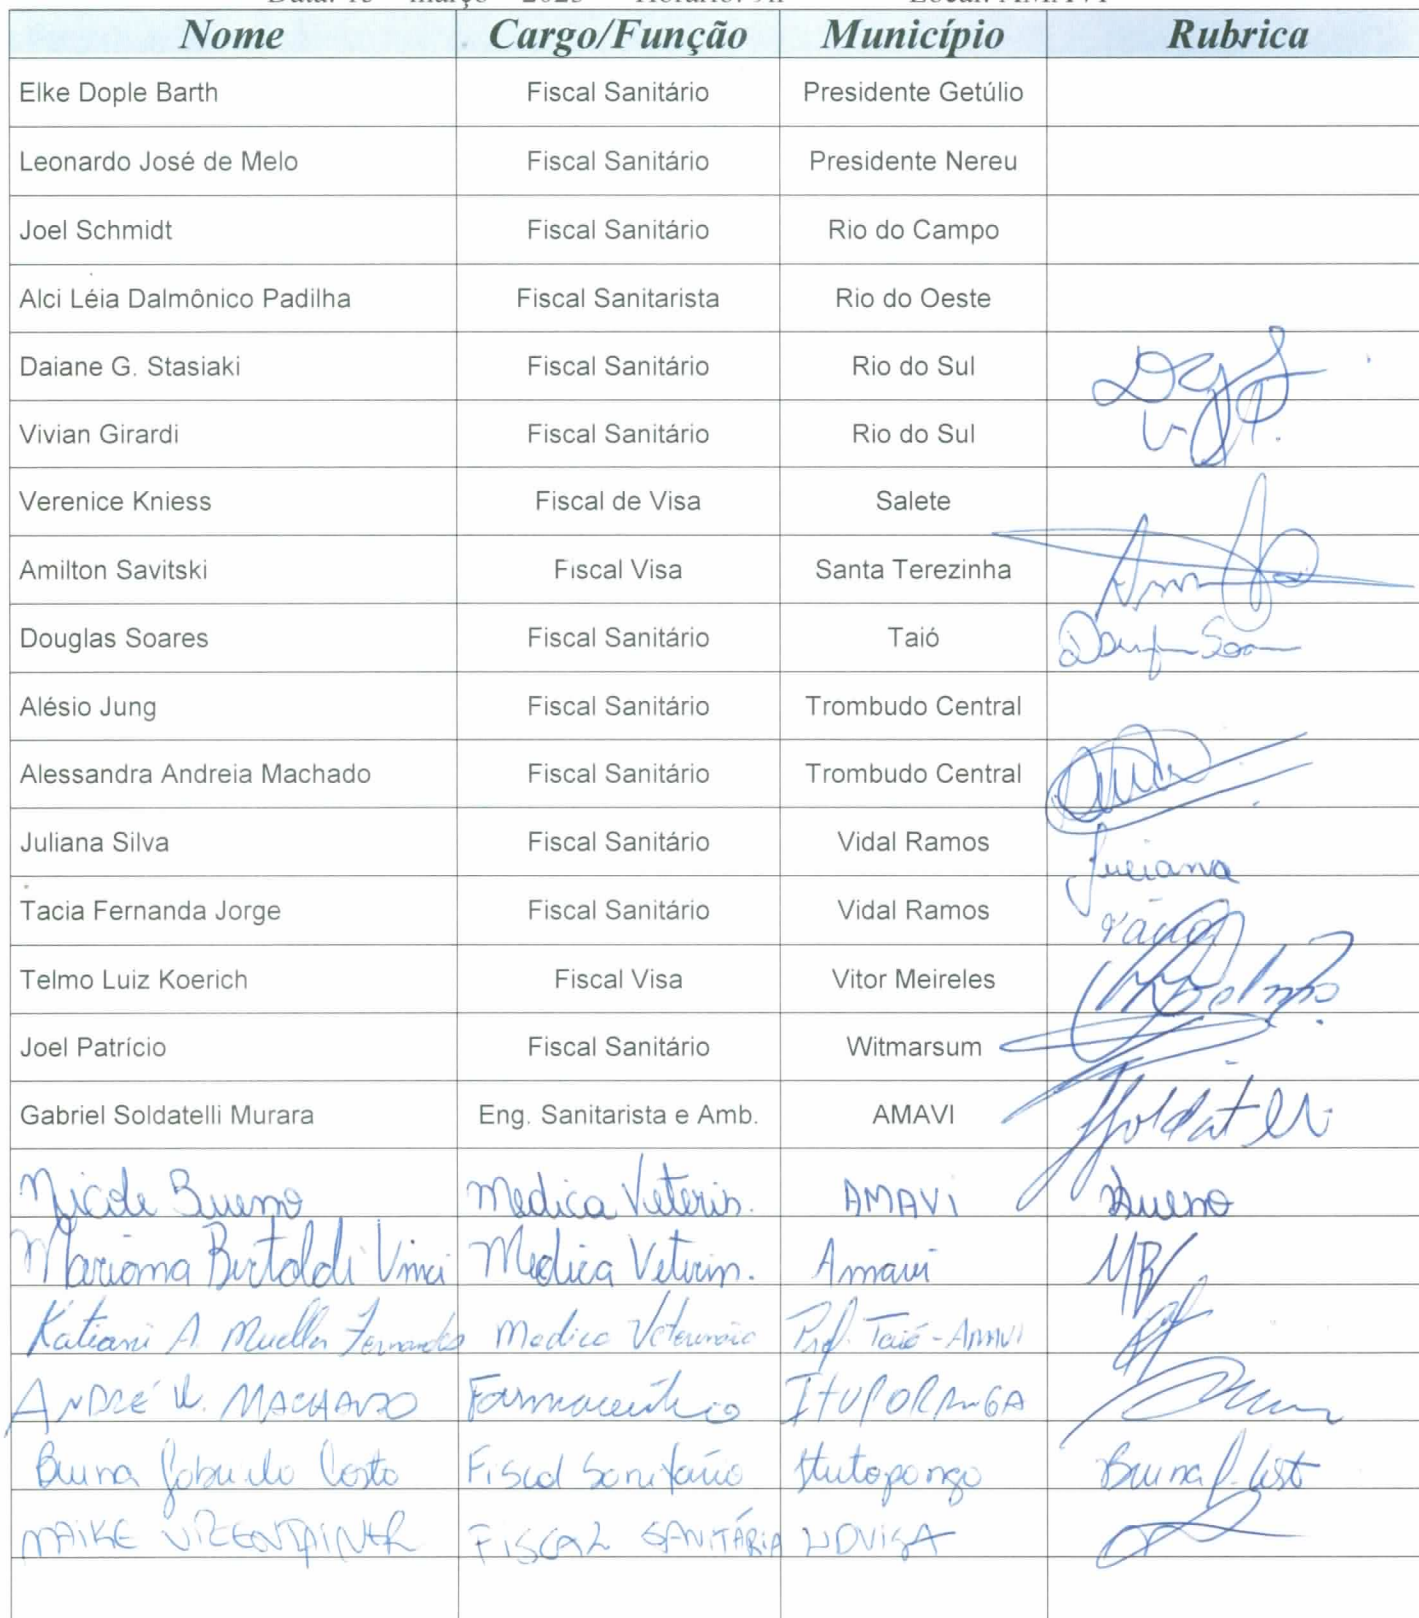 Nome Cargo/Função Município Rubrica
Elke Dople Barth Fiscal Sanitário Presidente Getúlio
Leonardo José de Melo Fiscal Sanitário Presidente Nereu
Joel Schmidt Fiscal Sanitário Rio do Campo
Alci Léia Dalmônico Padilha Fiscal Sanitarista Rio do Oeste
Daiane G. Stasiaki Fiscal Sanitário Rio do Sul
Vivian Girardi Fiscal Sanitário Rio do Sul
Verenice Kniess Fiscal de Visa Salete
Amilton Savitski Fiscal Visa Santa Terezinha
Douglas Soares Fiscal Sanitário Taió
Alésio Jung Fiscal Sanitário Trombudo Central
Alessandra Andreia Machado Fiscal Sanitário Trombudo Central
Juliana Silva Fiscal Sanitário Vidal Ramos Juliana
Tacia Fernanda Jorge Fiscal Sanitário Vidal Ramos
Telmo Luiz Koerich Fiscal Visa Vitor Meireles
Joel Patrício Fiscal Sanitário Witmarsum
Gabriel Soldatelli Murara Eng. Sanitarista e Amb. AMAVI
Nicole Bueno Medica Veterin. AMAVI Bueno
Mariana Bertoldi Vinci Medica Veterin. Amavi MB
Katiani A. Mueller Fernandes Medica Veterinária Pref. Taió - AMAVI
ANDRÉ W. MACHADO Farmaceutico ITUPORANGA
Bruna Costa Fiscal Sanitário Bruna
MAIKE FISCAL SANITÁRIA